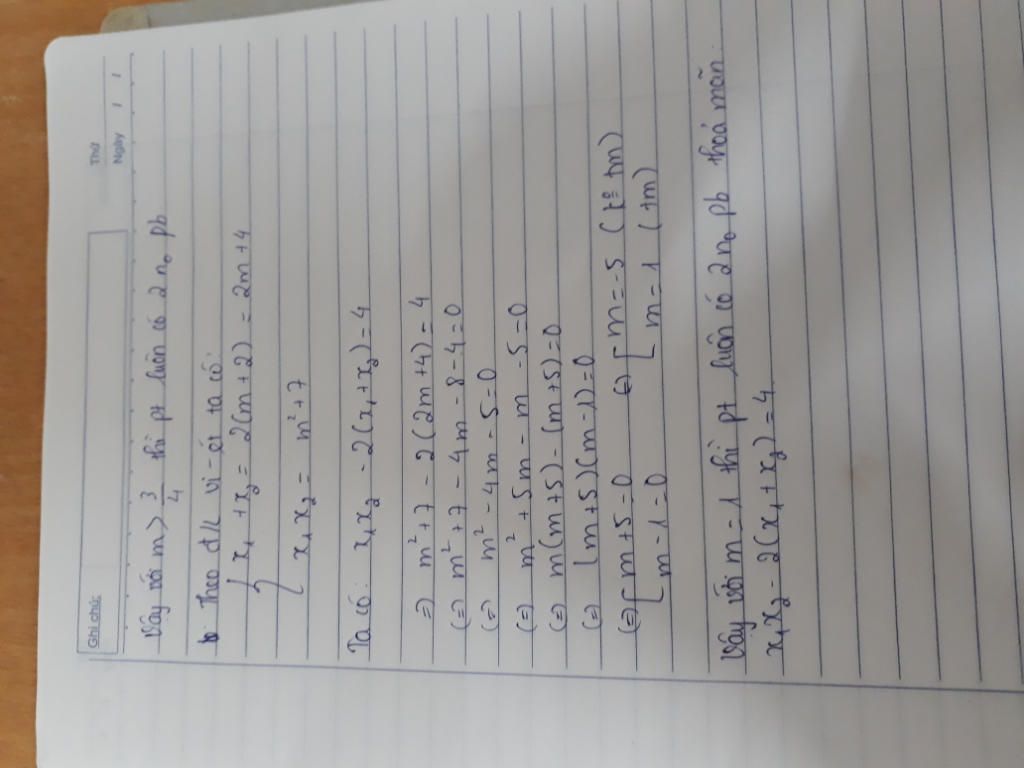 Thứ
Ngày / /
Ghi chú:
Vậy với m > 3/4 thì pt luôn có 2 n₀ pb
b. Theo đ/l vi-ét ta có:
{ x₁ + x₂ = 2(m+2) = 2m+4
x₁x₂ = m² + 7
Ta có: x₁x₂ - 2(x₁+x₂) = 4
(=) m² + 7 - 2(2m+4) = 4
(=) m² + 7 - 4m - 8 - 4 = 0
(=) m² - 4m - 5 = 0
(=) m² + 5m - m - 5 = 0
(=) m(m+5) - (m+5) = 0
(=) (m+5)(m-1) = 0
(=) [ m+5 = 0 (=) [ m = -5 (ko tm)
m - 1 = 0 m = 1 (tm)
Vậy với m = 1 thì pt luôn có 2 n₀ pb thoả mãn:
x₁x₂ - 2(x₁+x₂) = 4.